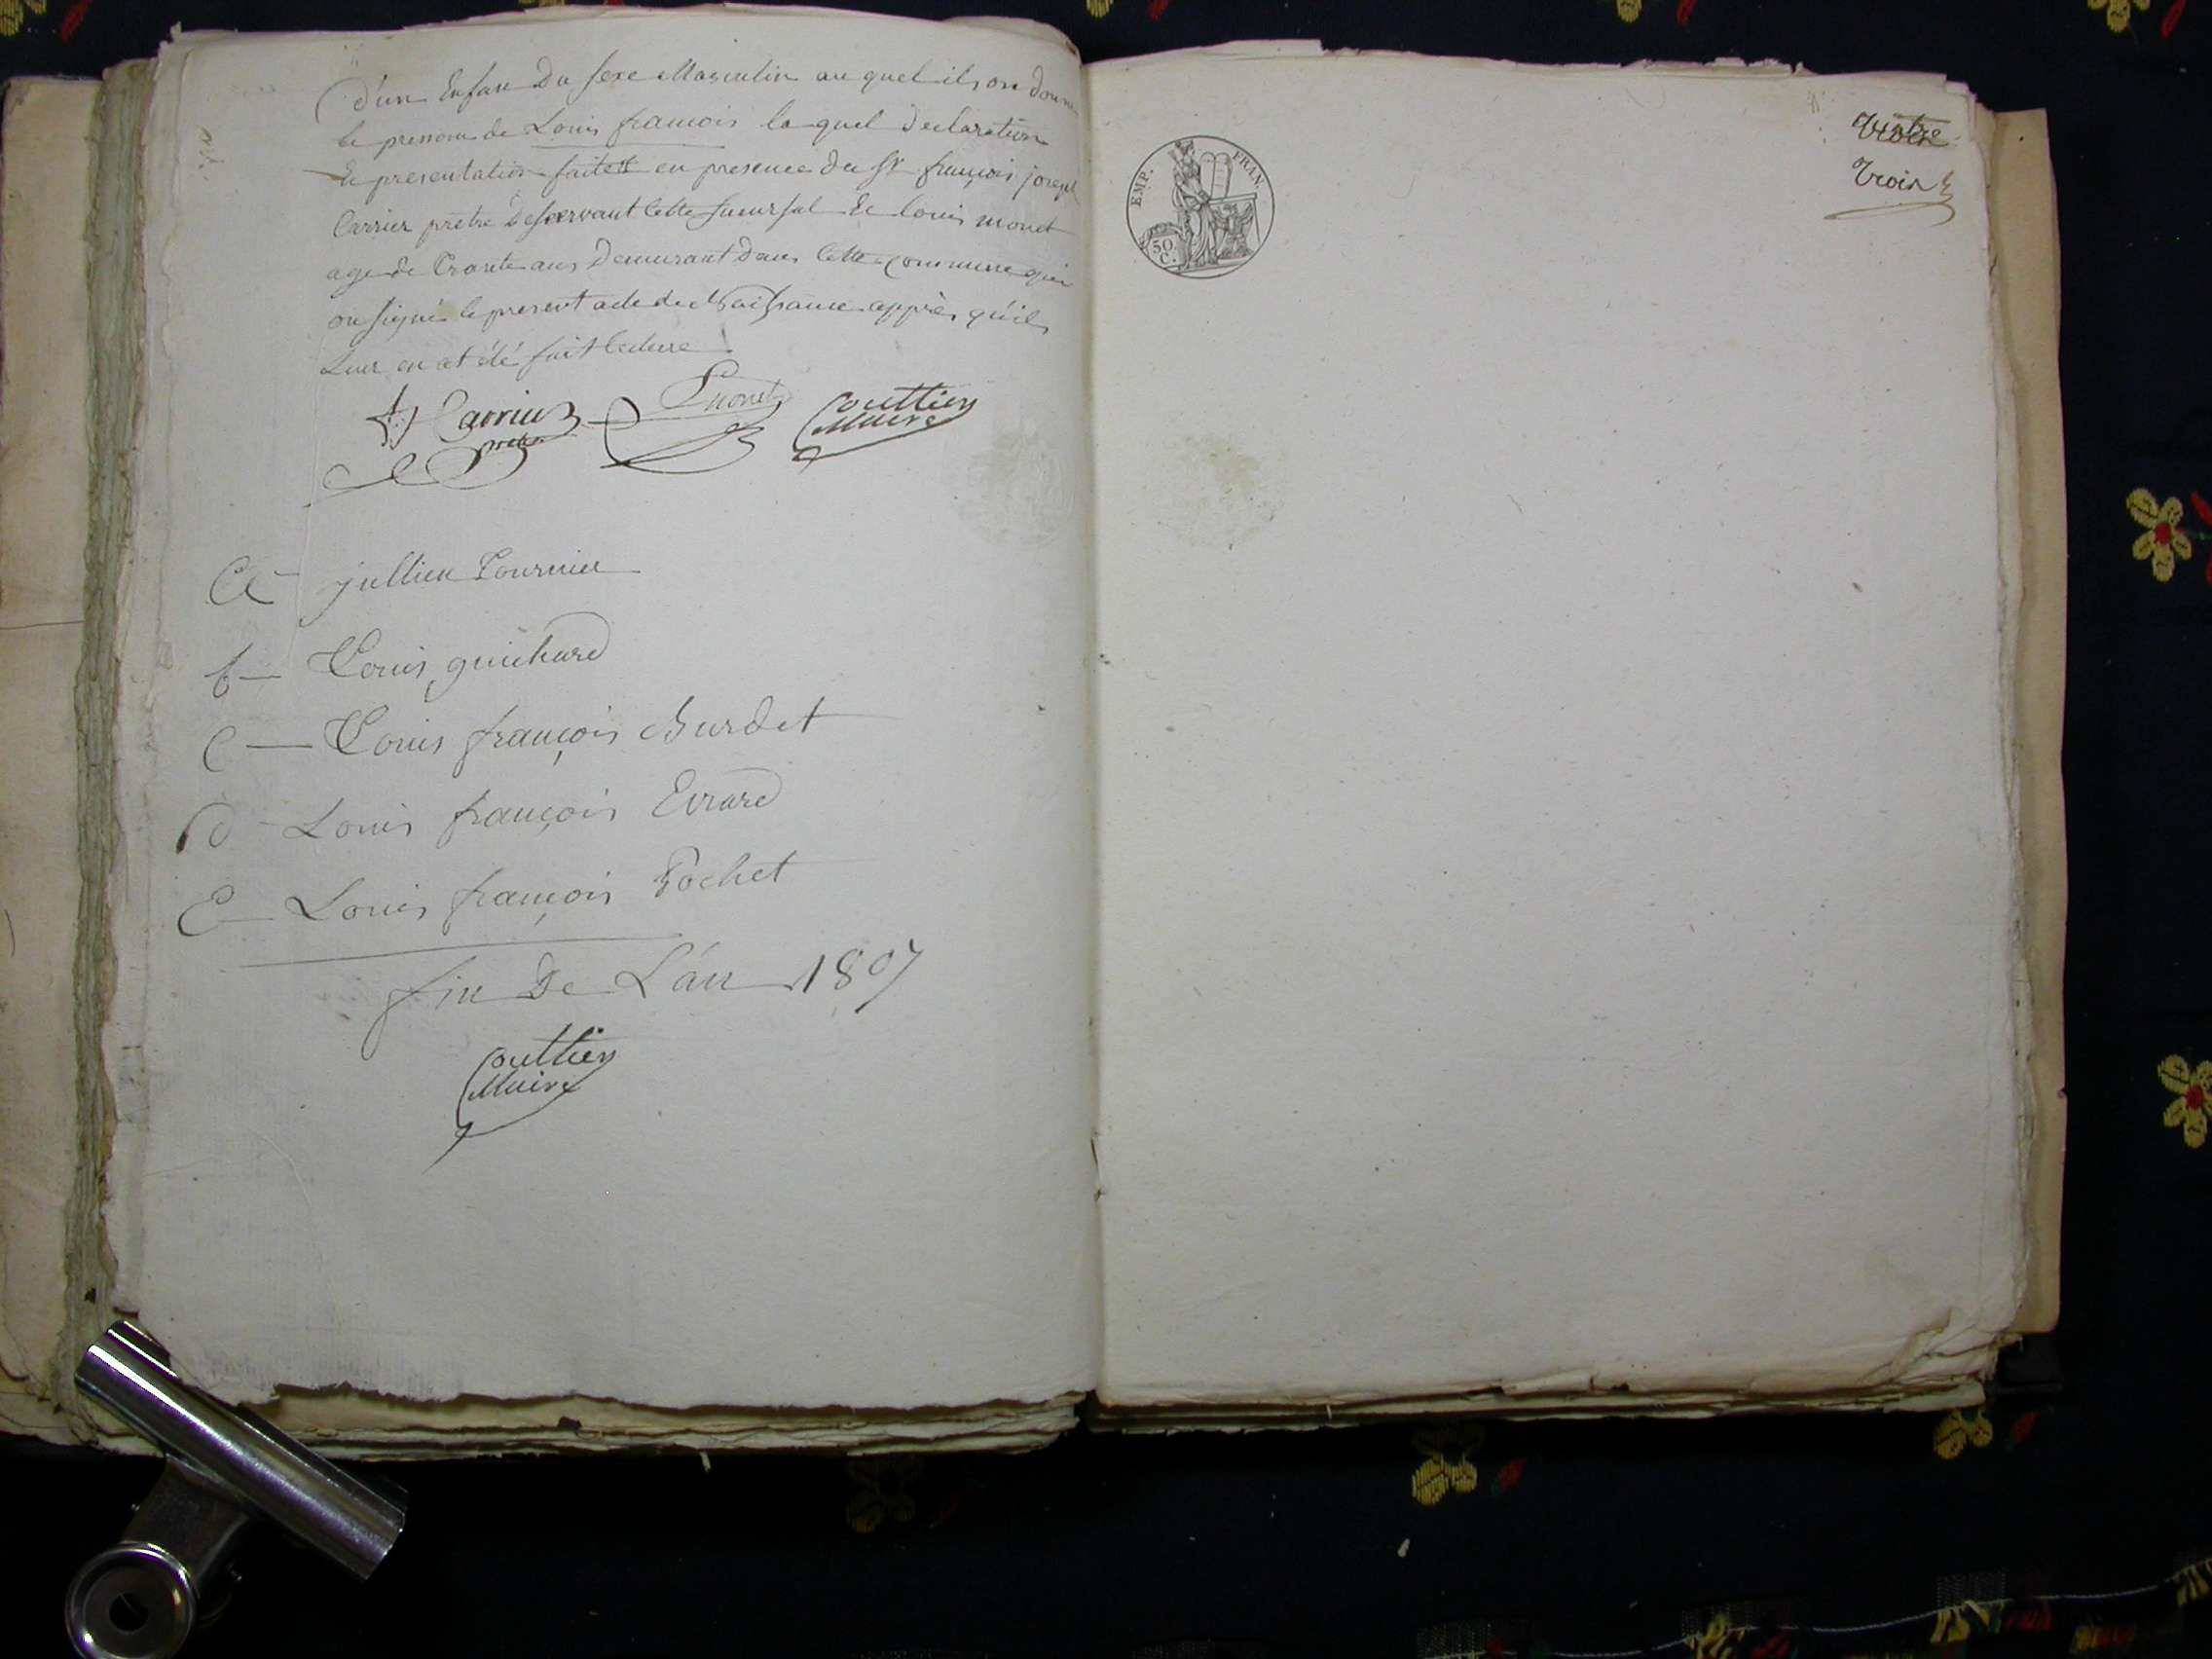 d'un Enfan Du sexe Masculin au quel ils on donné
le prenom de Louis francois la quel Declaration
Et presentation faitest en presence du Sr françois joseph
Carrier prêtre Desservant Cette Sucursal Et louis monet
age de Trante ans Demeurant dans Cette Commune qui
on signé le present acte de Naissance apprès qu'il
Leur en at été fait lecture
Carrier
prêtre
Monet
Couttier
Maire
A jullien Tournier
b Louis guichard
C Louis françois Burdet
d Louis françois Evrard
E Louis françois Pochet
fin De L'an 1807
Couttier
Maire
EMP. FRAN.
50
C.
trois